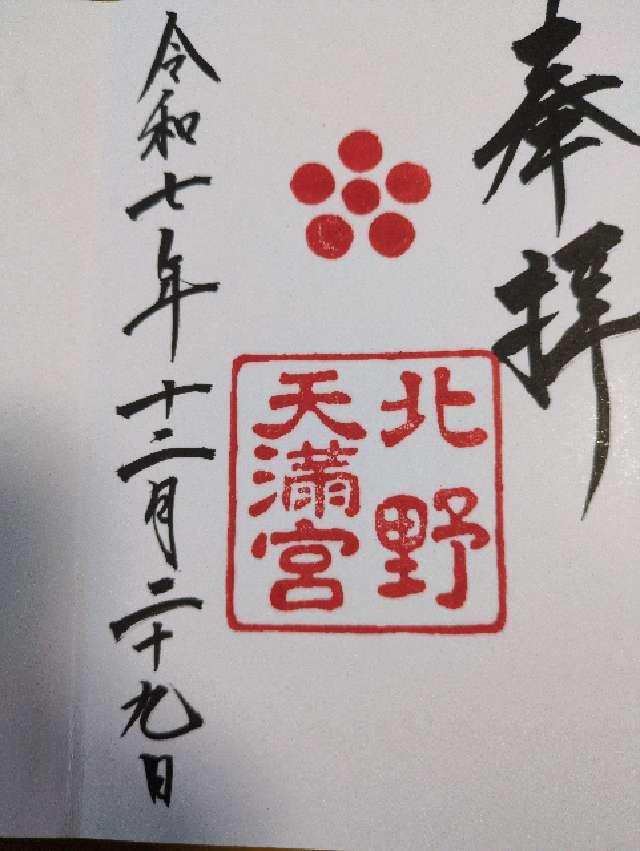 奉拝
北野
天満宮
令和七年十二月二十九日